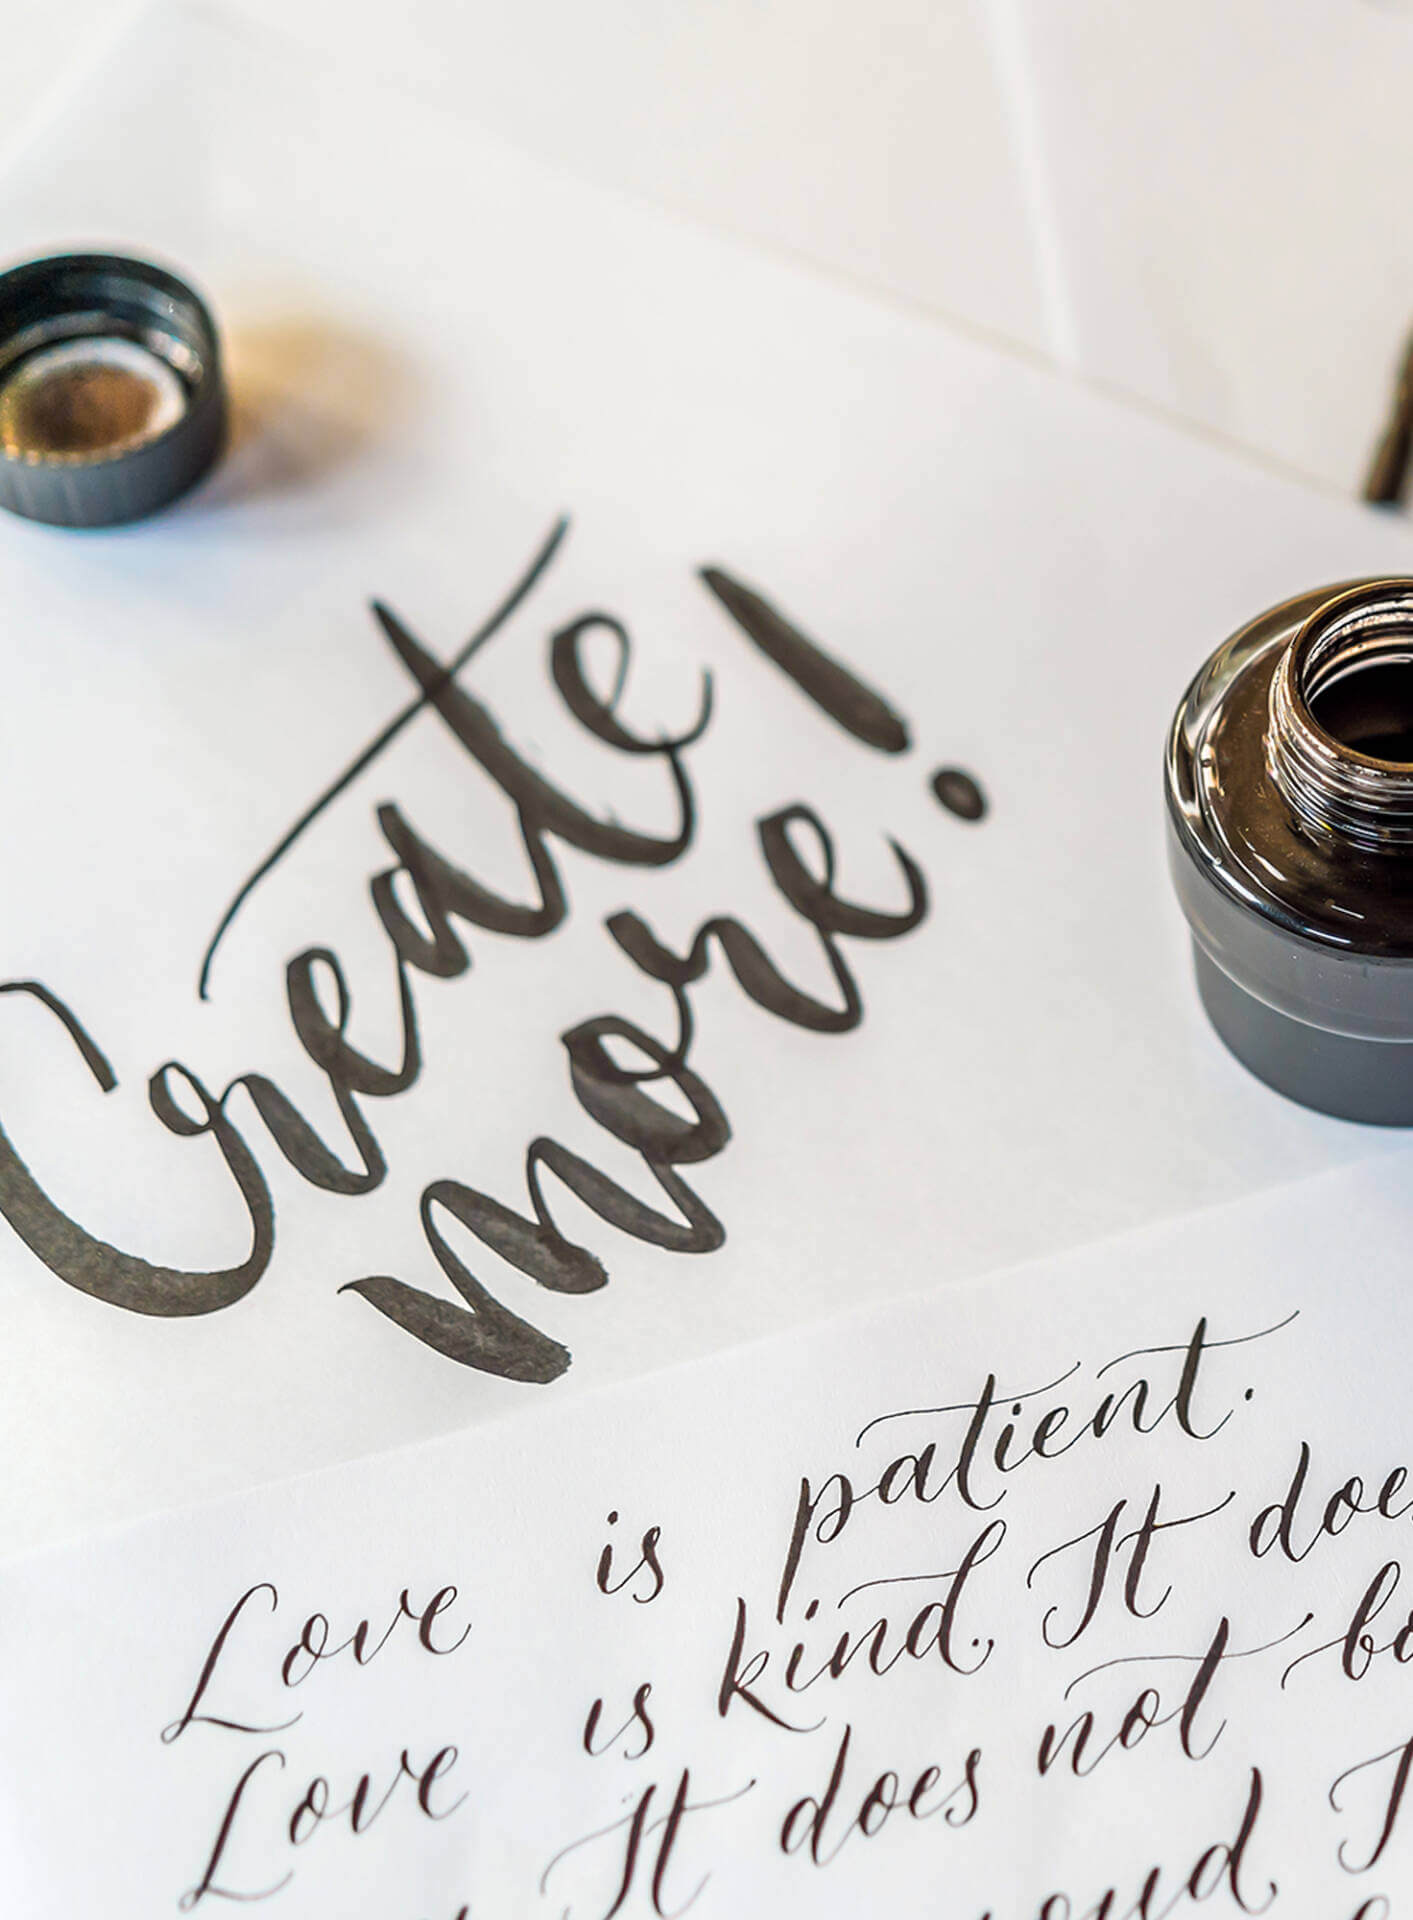 Create
more!
Love is patient.
Love is kind. It
It does not